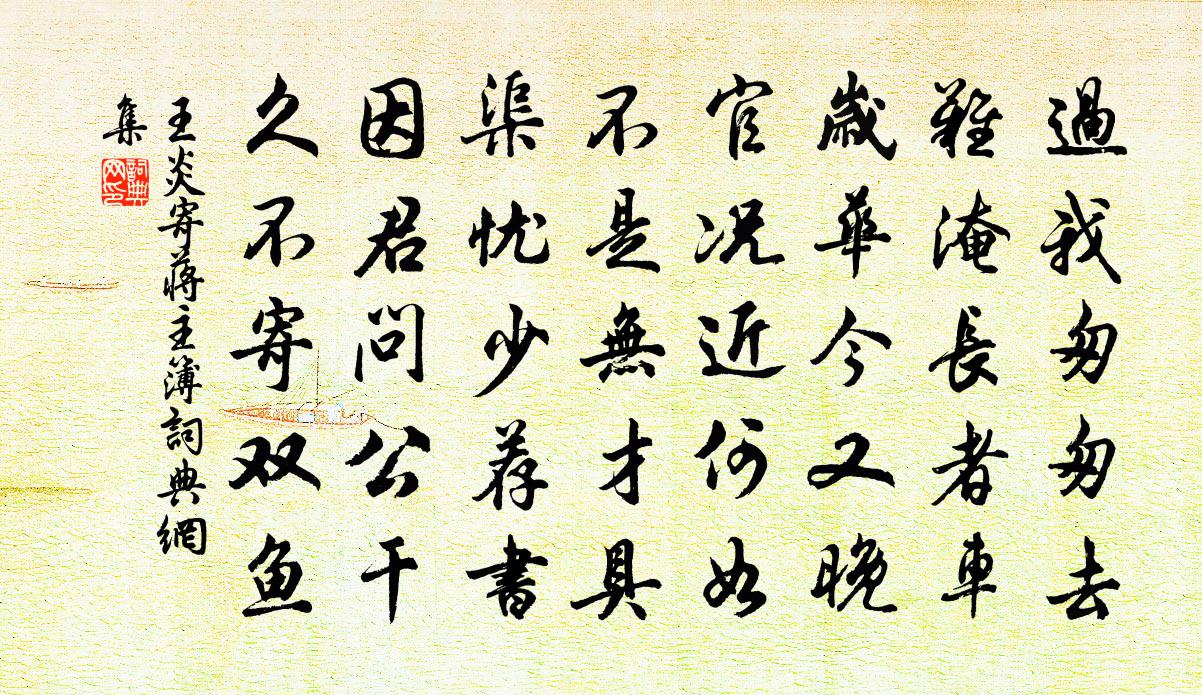 過我匆匆去
難淹長者車
歲華今又晚
官况近何如
不是無才具
渠忧少荐書
因君問公干
久不寄双魚
王炎寄蔣主簿詞典網
集
詞典
网印